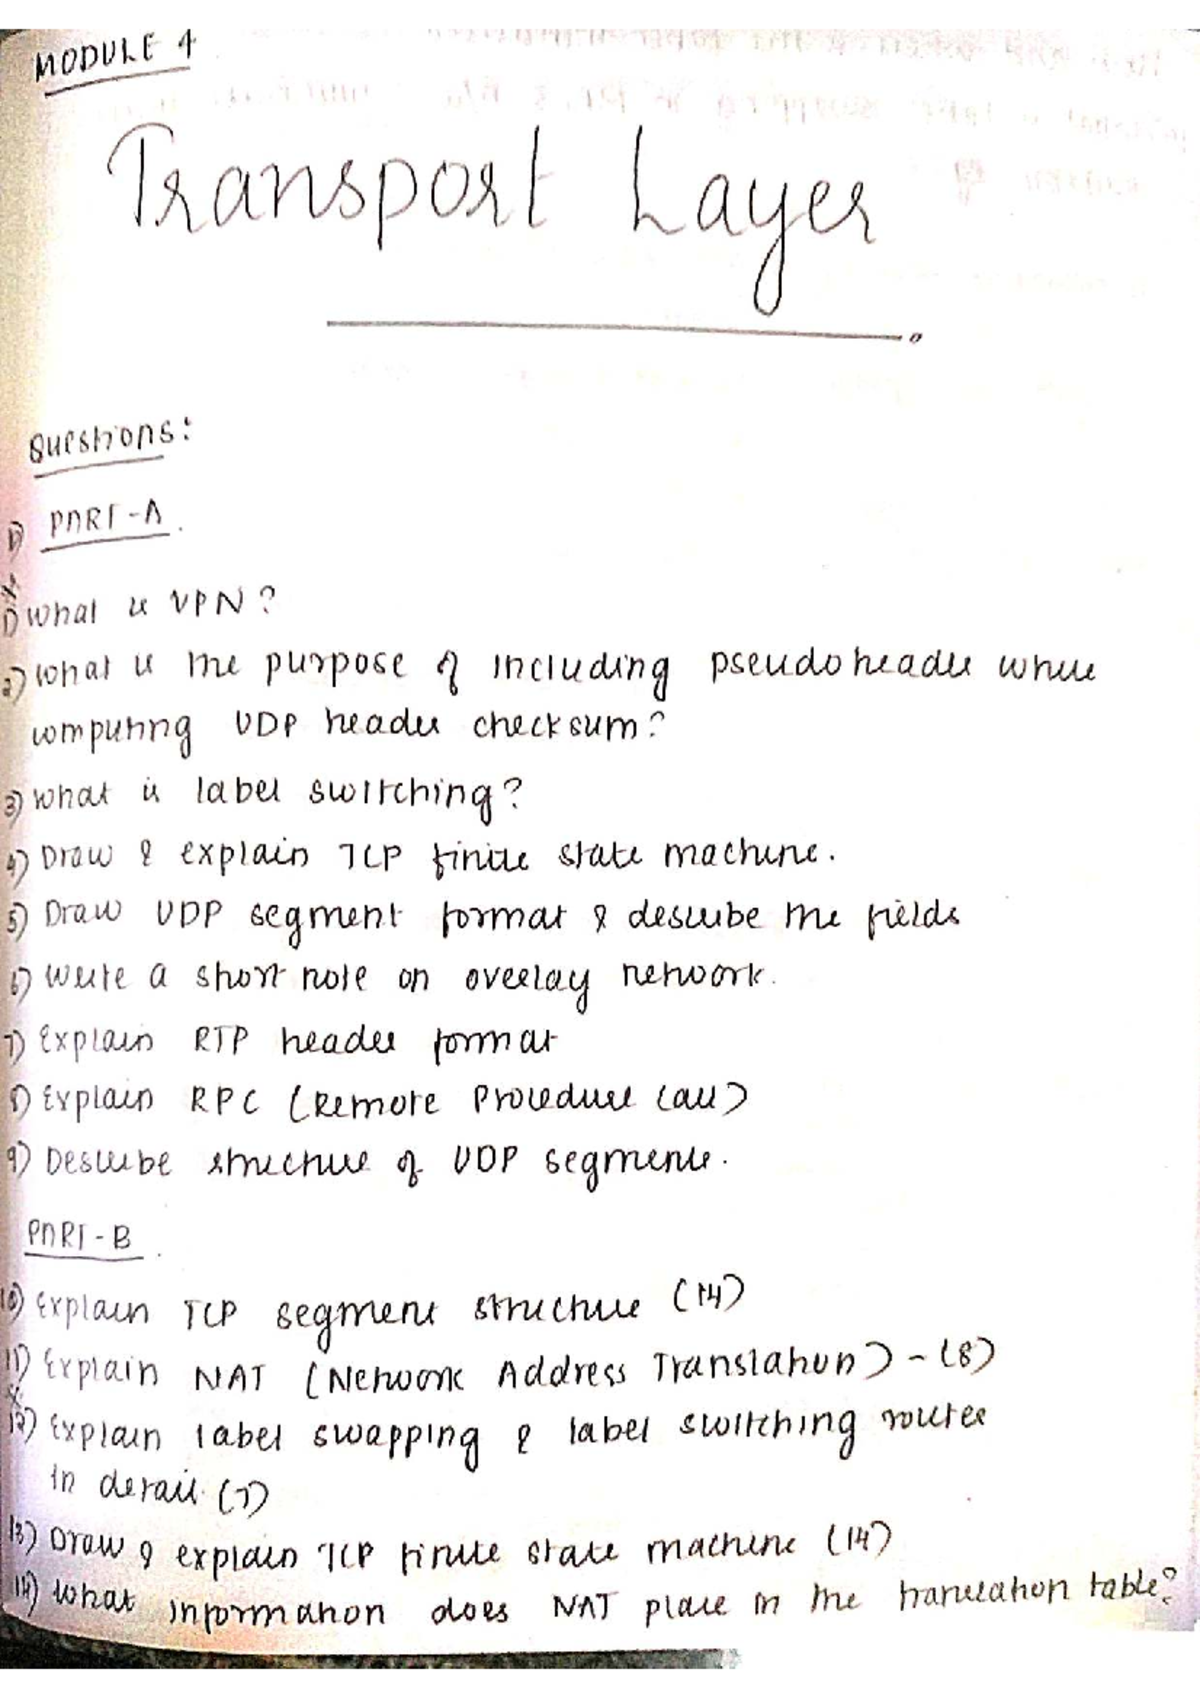 MODULE 4
Transport Layer
Questions:
1) PART-A.
1) What is VPN?
2) What is the purpose of including pseudoheader while
computing UDP header checksum?
3) What is label switching?
4) Draw & explain TCP finite state machine.
5) Draw UDP segment format & describe the fields
6) Write a short note on overlay network.
7) Explain RTP header format
8) Explain RPC (Remote Procedure Call)
9) Describe structure of UDP segments.
PART-B.
10) Explain TCP segment structure (14)
11) Explain NAT (Network Address Translation) - (8)
12) Explain label swapping & label switching router
in detail. (7)
13) Draw & explain TCP finite state machine (14)
14) What information does NAT place in the translation table?